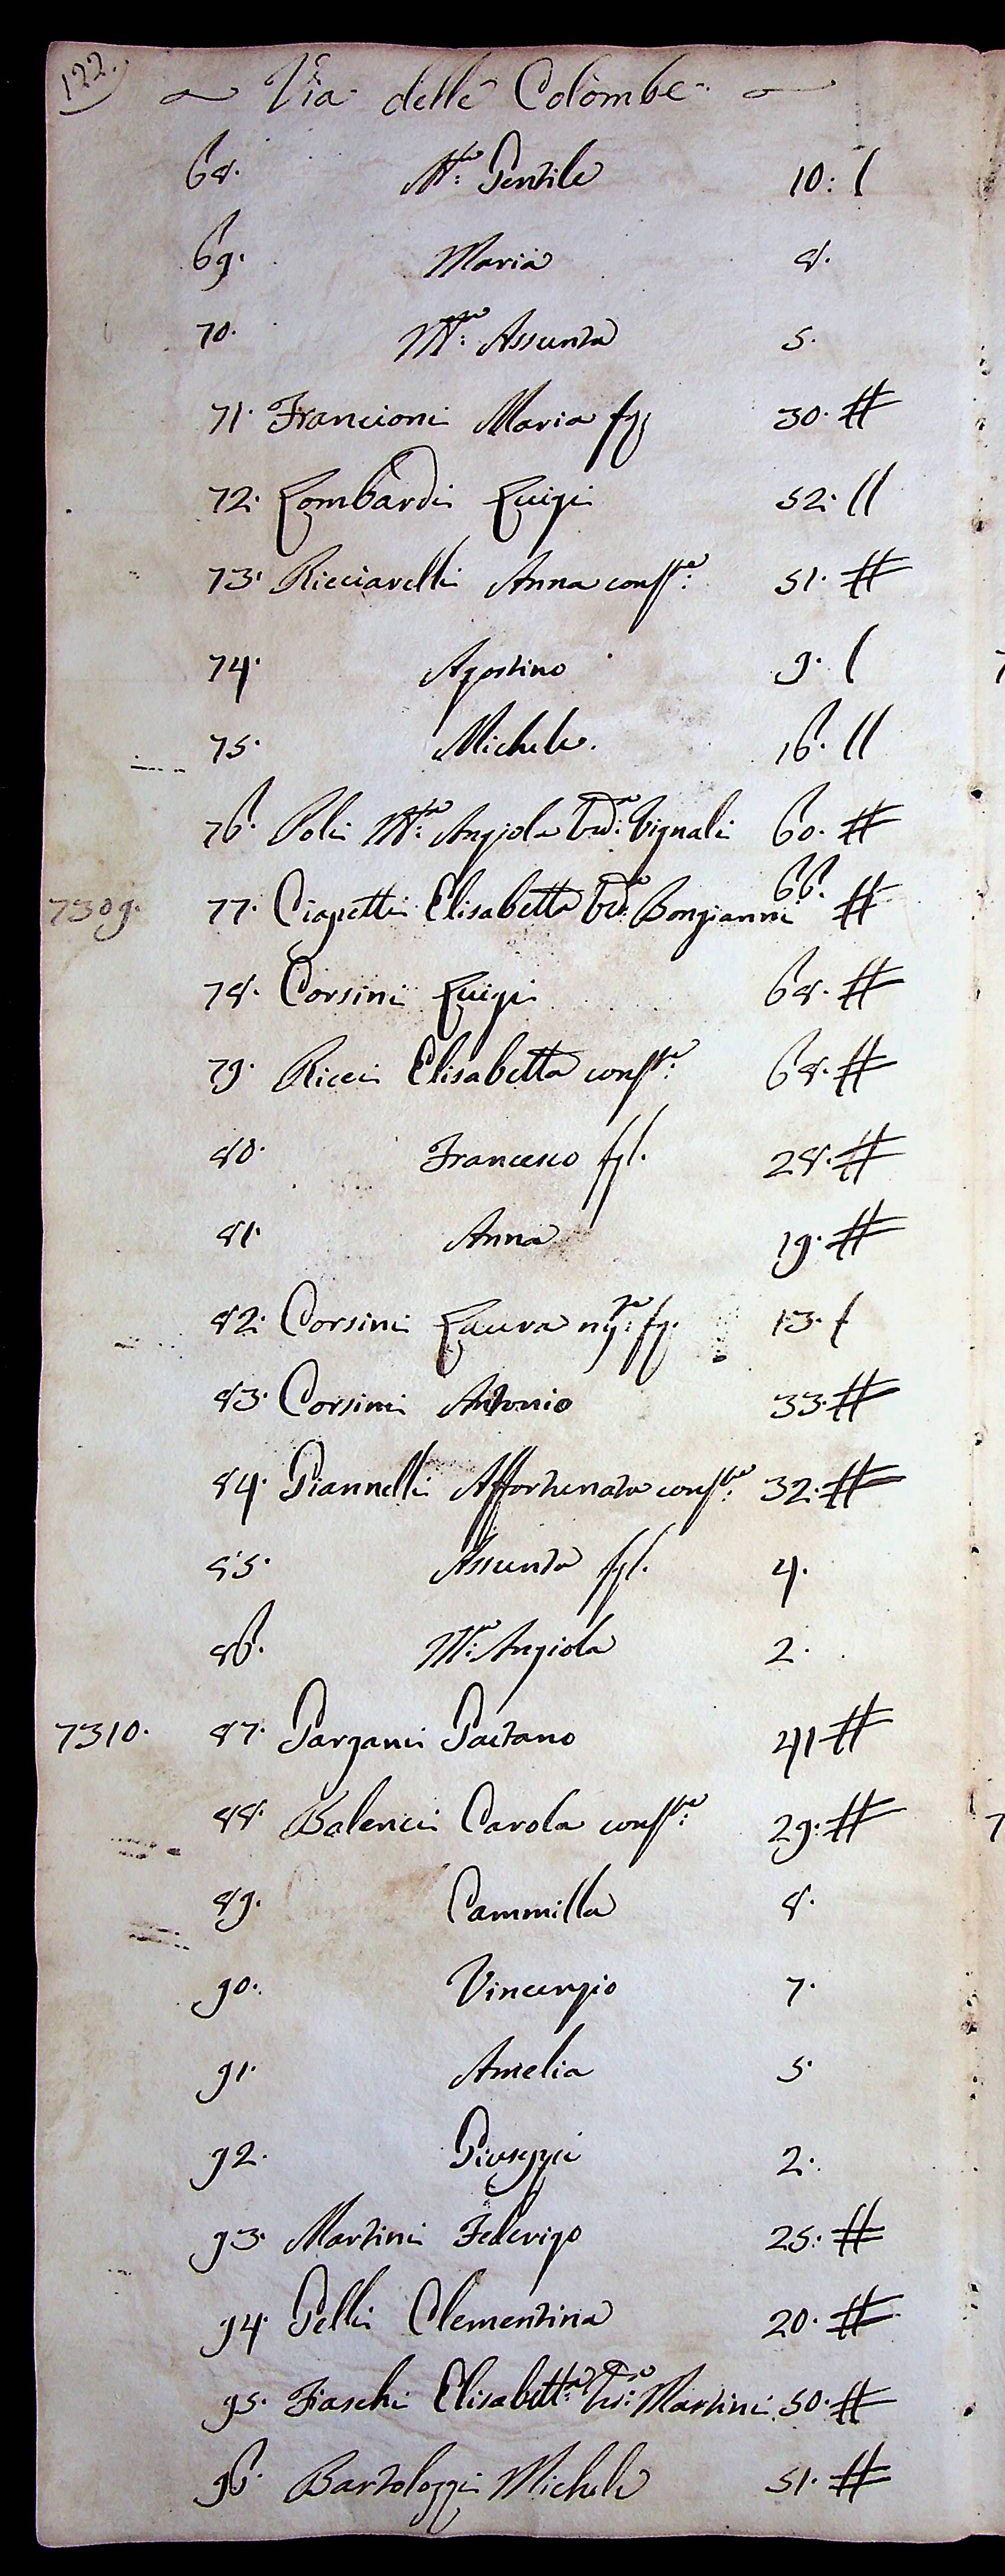 122.
Via delle Colombe
68. M.ª Gentile 10:
69. Maria 8.
70. M.ª Assunta 5.
71. Francioni Maria fg. 30.
72. Lombardi Luigi 52.
73. Ricciarelli Anna cons.te 51.
74. Agostino 9.
75. Michele. 16.
76. Poli M.ª Angiola Ved.ª Vignali 60.
7309. 77. Ciapetti Elisabetta Ved.ª Bongianni 66.
78. Corsini Luigi 68.
79. Ricci Elisabetta cons.te 68.
80. Francesco fgl. 28.
81. Anna 19.
82. Corsini Laura fg. 13.
83. Corsini Antonio 33.
84. Giannelli Affortunata cons.te 32.
85. Assunta fgl. 4.
86. M.ª Angiola 2.
7310. 87. Gargani Gaetano 41
88. Balenci Carola cons.te 29.
89. Cammilla 8.
90. Vincenzio 7.
91. Amelia 5.
92. Giuseppe 2.
93. Martini Federigo 25.
94. Pelli Clementina 20.
95. Fiaschi Elisabett.ª Ved.ª Martini 50.
96. Bartolozzi Michele 51.